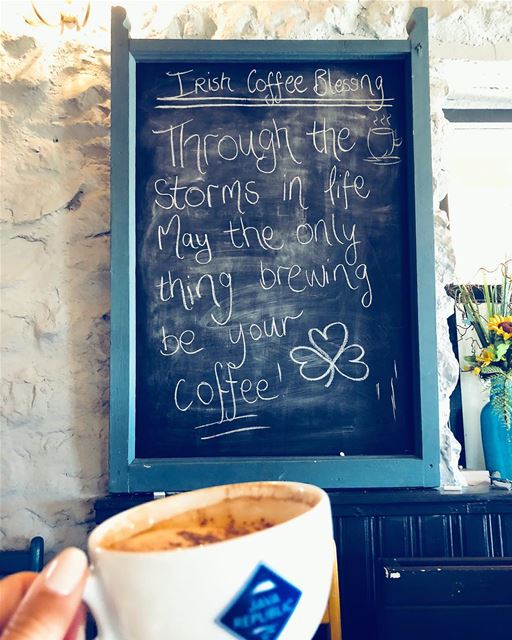 Irish Coffee Blessing
Through the
storms in life
May the only
thing brewing
be your
coffee!
JAVA
REPUBLIC